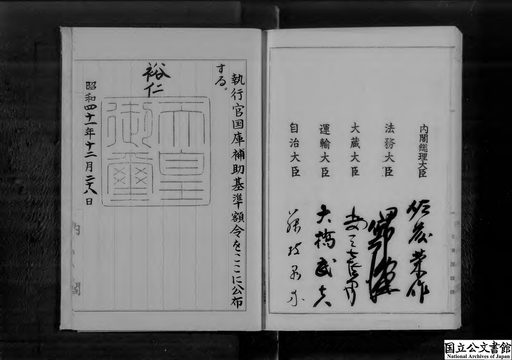 内閣総理大臣 佐藤榮作
法務大臣
大蔵大臣
運輸大臣 大橋武夫
自治大臣
執行官国庫補助基準額令をここに公布
する。
裕仁
天皇御璽
昭和四十一年十二月二十八日
内閣
国立公文書館
National Archives of Japan